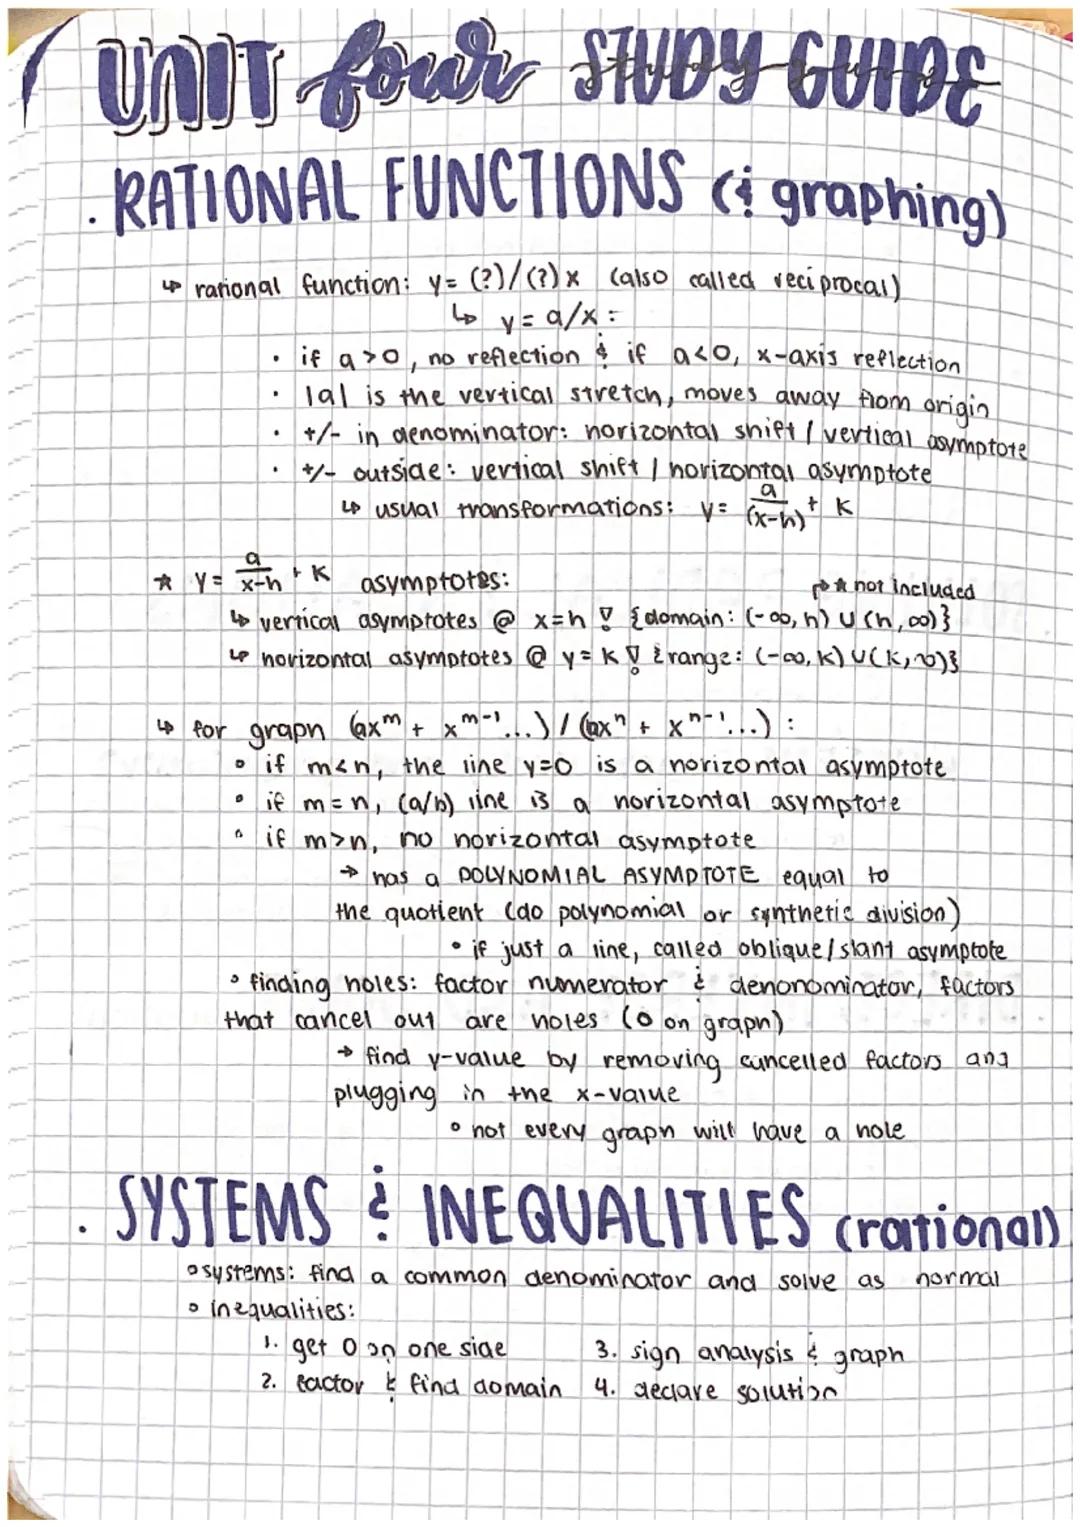 UNIT four STUDY GUIDE
. RATIONAL FUNCTIONS (& graphing)
↳ rational function: y= (?)/(?)x (also called reciprocal)
↳ y= a/x:
• if a>0, no reflection & if a<0, x-axis reflection
• |a| is the vertical stretch, moves away from origin
• +/- in denominator: horizontal shift / vertical asymptote
• +/- outside: vertical shift / horizontal asymptote
↳ usual transformations: y= a/(x-h) + K
★ y= a/x-h + K asymptotes:
↱★ not included
↳ vertical asymptotes @ x=h ! {domain: (-∞, h) ∪ (h, ∞)}
↳ horizontal asymptotes @ y=K ! {range: (-∞, K) ∪ (K, ∞)}
↳ for graph (axᵐ + xᵐ⁻¹...) / (axⁿ + xⁿ⁻¹...) :
• if m<n, the line y=0 is a horizontal asymptote
• if m=n, (a/b) line is a horizontal asymptote
• if m>n, no horizontal asymptote
→ has a POLYNOMIAL ASYMPTOTE equal to
the quotient (do polynomial or synthetic division)
• if just a line, called oblique/slant asymptote
• finding holes: factor numerator & denonominator, factors
that cancel out are holes (o on graph)
→ find y-value by removing cancelled factors and
plugging in the x-value
• not every graph will have a hole
. SYSTEMS & INEQUALITIES (rational)
• systems: find a common denominator and solve as normal
• inequalities:
1. get 0 on one side 3. sign analysis & graph
2. factor & find domain 4. declare solution